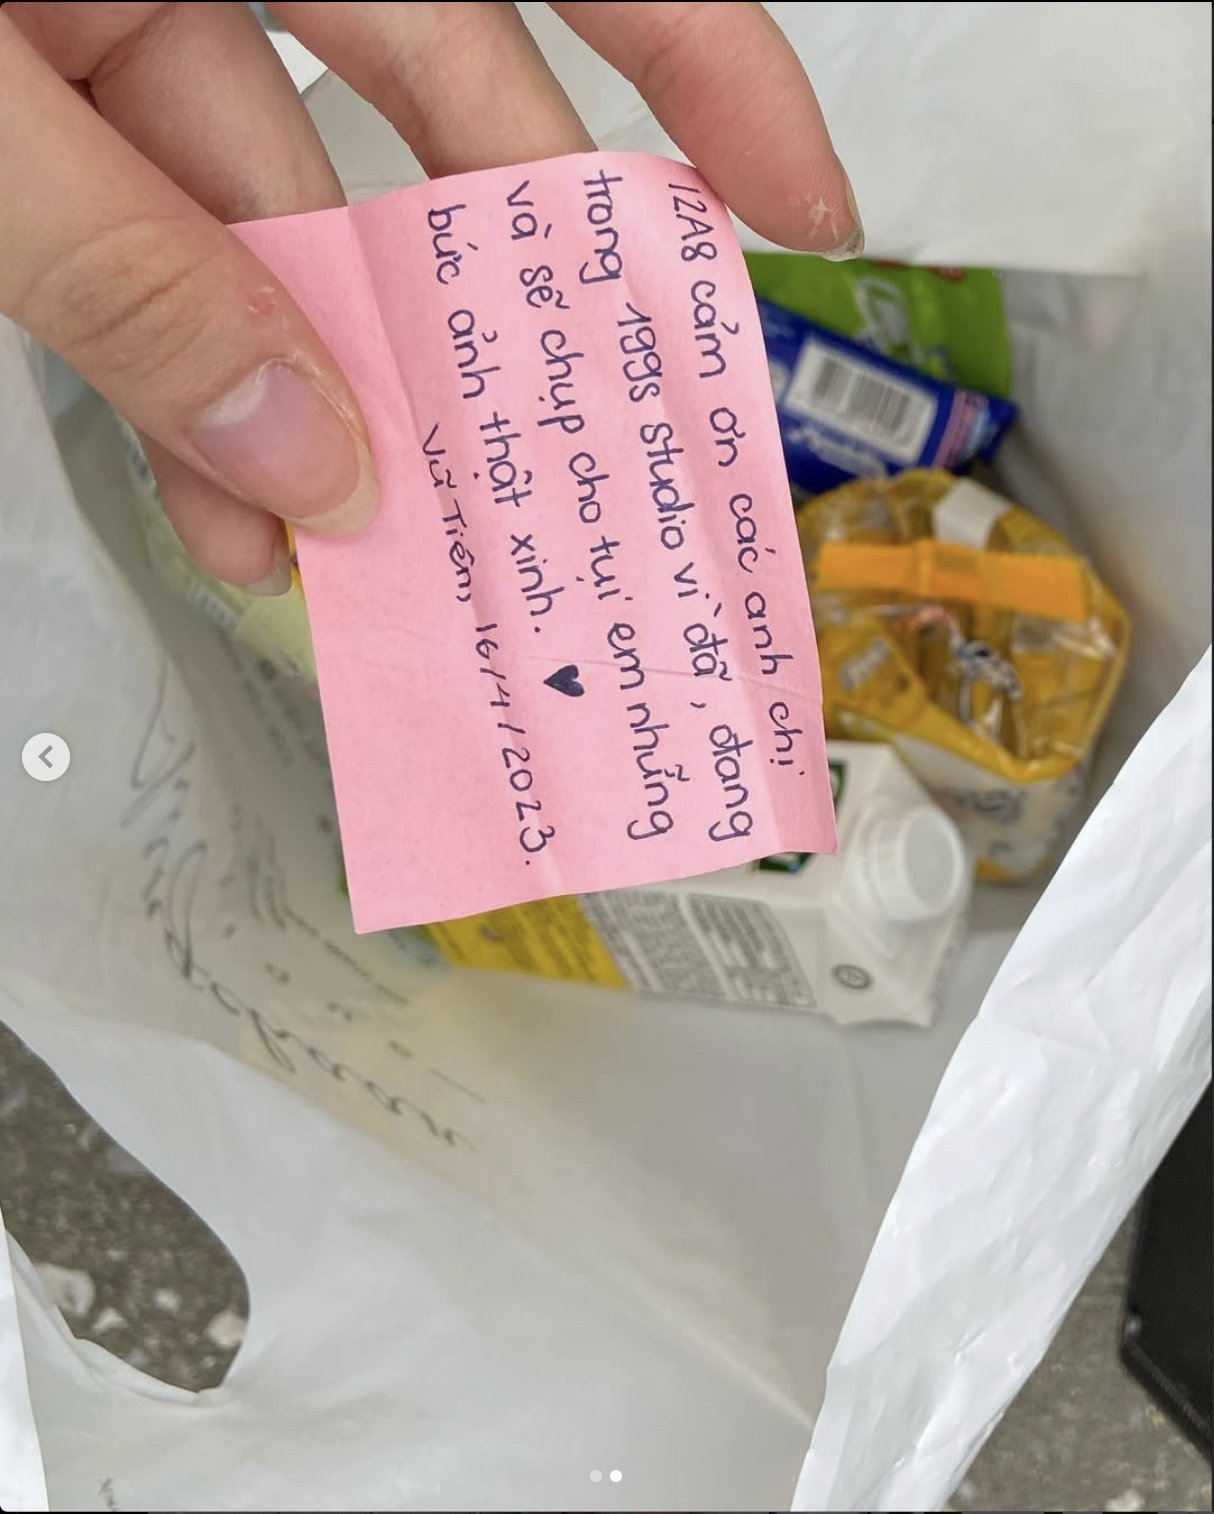 12A8 cảm ơn các anh chị
trong 199s studio vì đã, đang
và sẽ chụp cho tụi em những
bức ảnh thật xinh. ♥
Vũ Tiên, 16/4/2023.